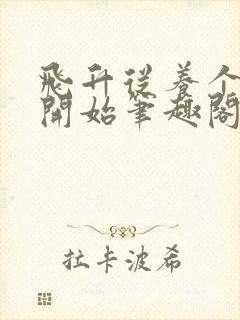 飛升從養个
開始筆趣閣
拉卡波希